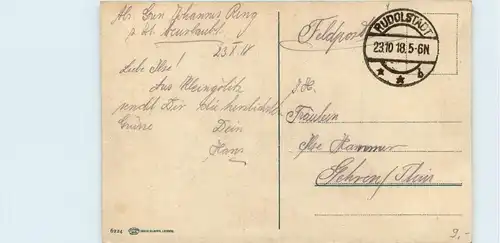 Abs. Gren. Johannes Ring
z. Zt. beurlaubt.
23.X.18
Liebe Ilse!
Aus Kleingölitz
Dir die herzlichsten
Grüsse
Dein
Hans
Feldpost
RUDOLSTADT
23.10 18.5-6N
* * b
Fräulein
Ilse Hammer
Gehren/Thür.
6224
2,-